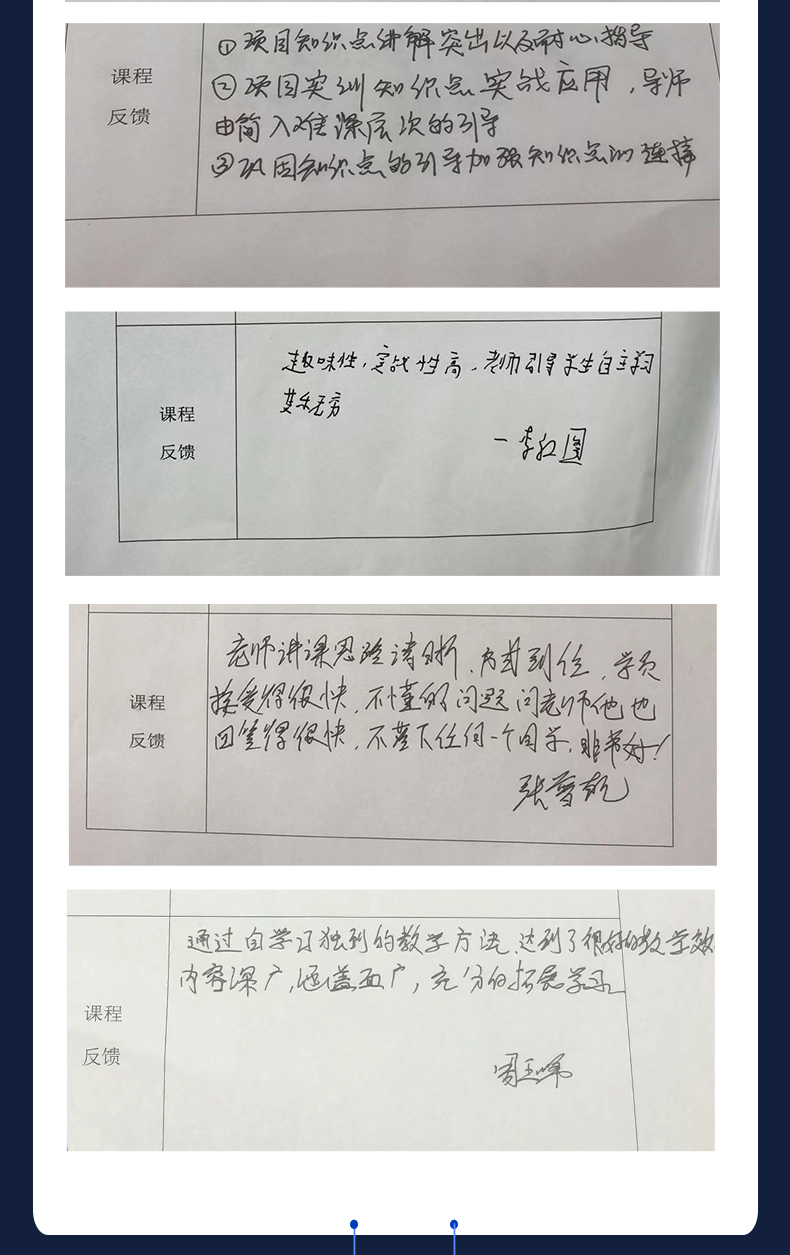 课程
反馈
①项目知识点讲解突出以及耐心指导
②项目实训知识点实战应用,导师
由简入难深层次的引导
③巩固知识点的引导加强知识点的连接
课程
反馈
趣味性,实战性高,老师引导学生自主学习
其乐无穷
一李红图
课程
反馈
老师讲课思路清晰,方式到位,学员
接受得很快,不懂的问题问老师他也
回答得很快,不落下任何一个同学,非常好!
张
课程
反馈
通过自学习独到的教学方法,达到了很好的教学效
内容深广,涵盖面广,充分的拓展学习
周玉峰